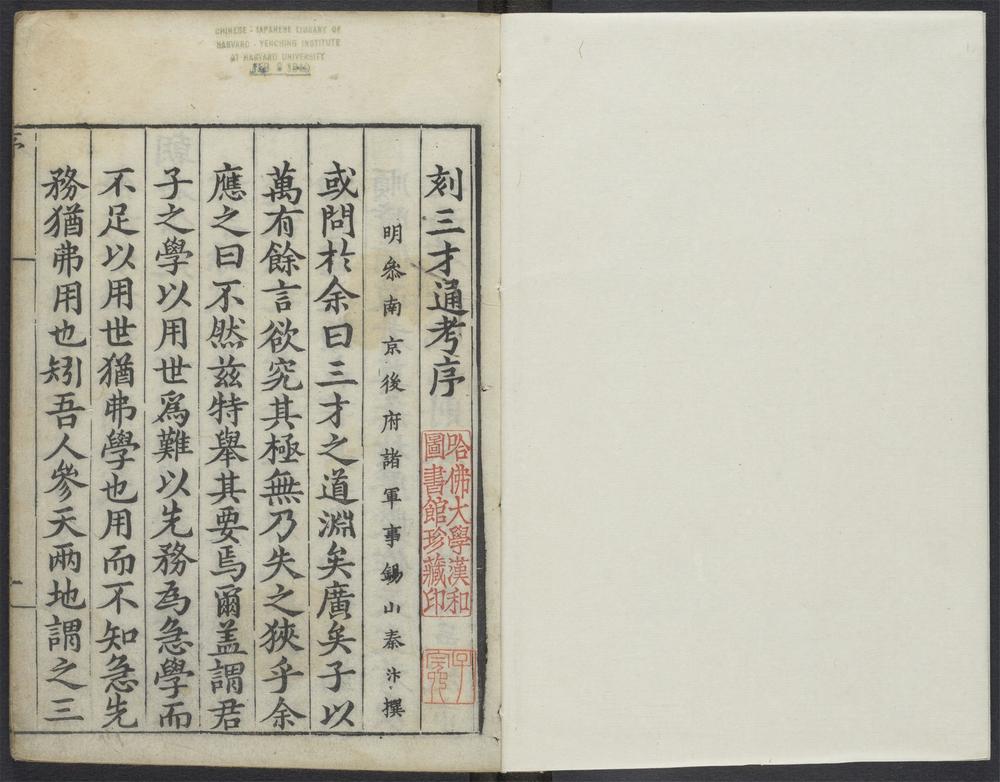 CHINESE - JAPANESE LIBRARY OF
HARVARD - YENCHING INSTITUTE
AT HARVARD UNIVERSITY
刻三才通考序
哈佛大學漢和
圖書館珍藏印
明叅南京後府諸軍事錫山秦汴撰
或問於余曰三才之道淵矣廣矣子以
萬有餘言欲究其極無乃失之狹乎余
應之曰不然兹特舉其要焉爾盖謂君
子之學以用世爲難以先務爲急學而
不足以用世猶弗學也用而不知急先
務猶弗用也矧吾人參天兩地謂之三